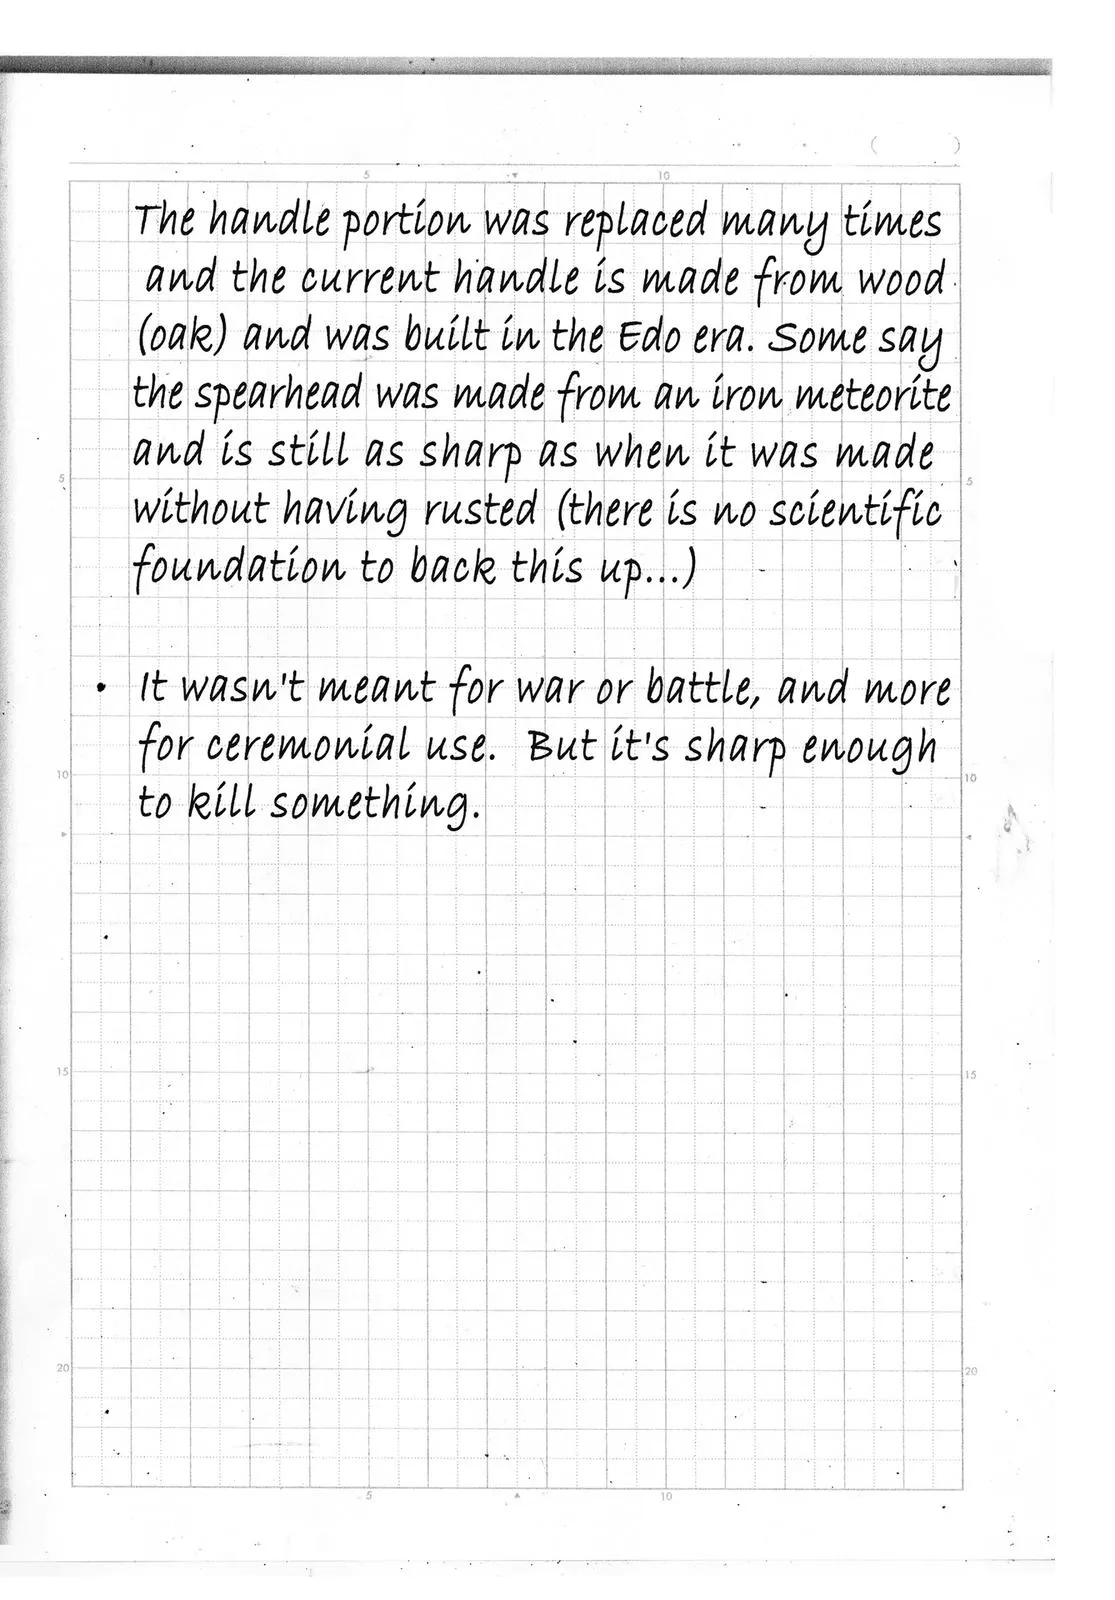 ( )
5 10
The handle portion was replaced many times
and the current handle is made from wood
(oak) and was built in the Edo era. Some say
the spearhead was made from an iron meteorite
and is still as sharp as when it was made
5 5
without having rusted (there is no scientific
foundation to back this up...)
• It wasn't meant for war or battle, and more
for ceremonial use. But it's sharp enough
10 10
to kill something.
15 15
20 20
5 10